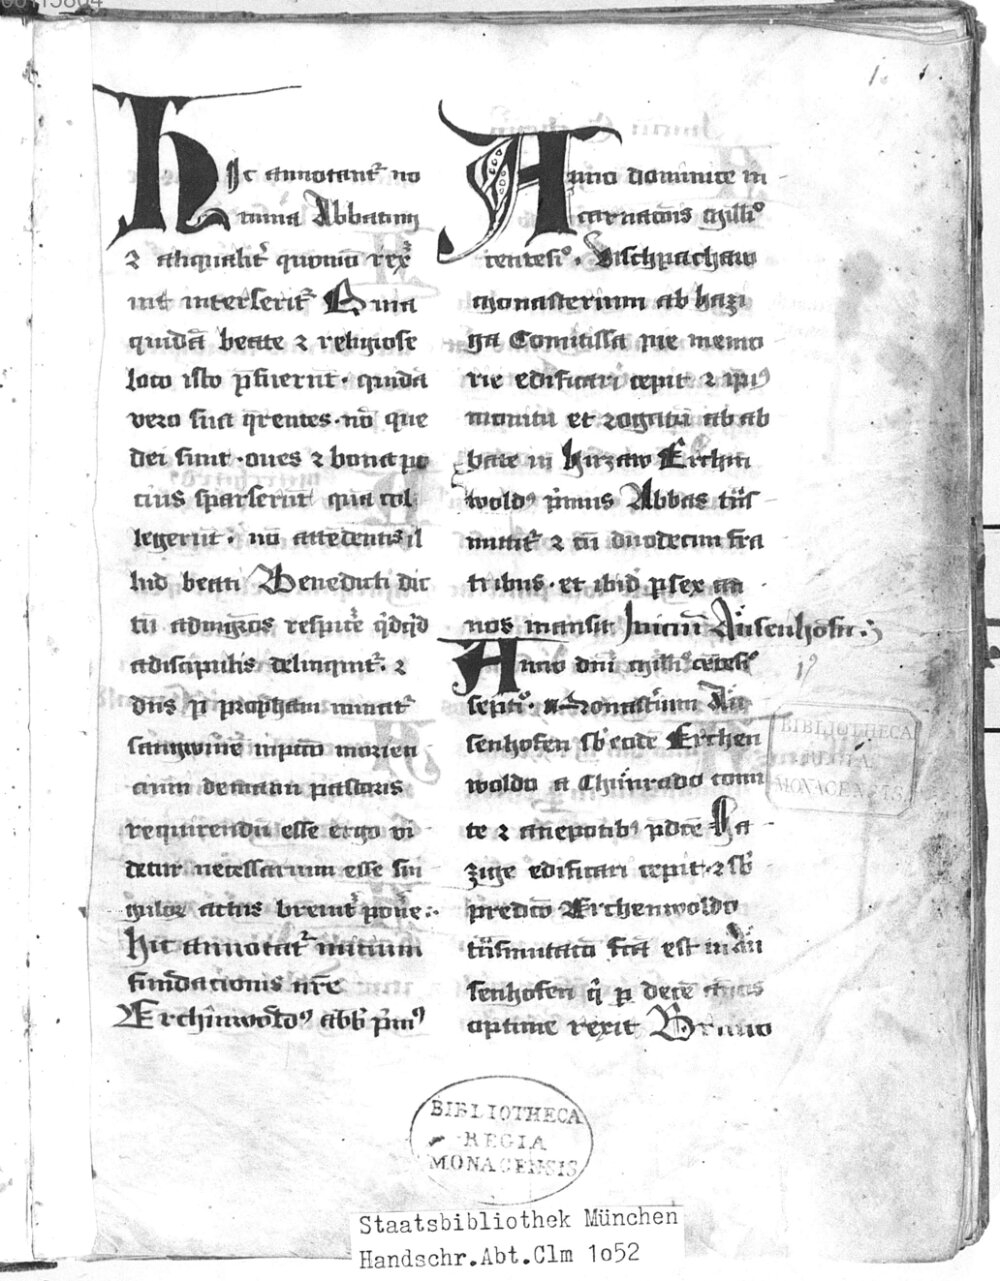 00115804
1. 1.
Hic annotant᷑ no
mina Abbatum
⁊ aliqualit᷑ quomō rex᷑
int interserit᷑ Quia
quidā beate ⁊ religiose
loco isto p̄fuerūt · quidā
vero sua q̄rentes · nō que
dei sunt · oues ⁊ bona po
cius sparserūt quā col
legerūt · nō attēdentes il
lud beati Benedicti dic
tū ad
respice᷑ q̄dq̄d
a discipulis delinquit᷑ · ⁊
dn̄s p̱ proph̄am minat᷑
sangwinē
morien
cium de manu pastoris
requirendū esse ergo vi
detur necessarium esse sin
gulorꝝ actus breuit᷑ pon̄e :·
Hic annotat᷑ inicium
fundacionis nr̄e
Erchin̄woldꝰ abb̄ p̄mꝰ
Anno dominice in
carnacōis Millᵒ
centesiᵒ · Vischpachaw
Monasterium ab Hazi
ga Comitissa pie memo
rie edificari cepit ⁊ ip̄iꝰ
monitu et rogatu ab ab
bate in Hirzaw Erchin
woldꝰ p̄mus Abbas tn̄s
mittit᷑ ⁊ cū duodecim fra
tribus · et ibid̄ p̱ sex an
nos mansit Iniciū Ausenhofn̄ ·
Anno dn̄i Millᵒ cētesiᵒ
septiᵒ · Monast᷑ium Au
senhofen sb̄ eodē Erchen
woldo a Chunrado comi
te ⁊ a nepotibꝰ p̄dc̄e Ha
zige edificari cepit · ⁊ sb̄
predc̄o Erchenwoldo
tn̄smutatio fc̄a est in Au
senhofen q̄ p̱ decē annos
optime rexit Bruno
BIBLIOTHECA
REGIA
MONACENSIS.
BIBLIOTHECA
REGIA
MONACENSIS
Staatsbibliothek München
Handschr.Abt.Clm 1o52